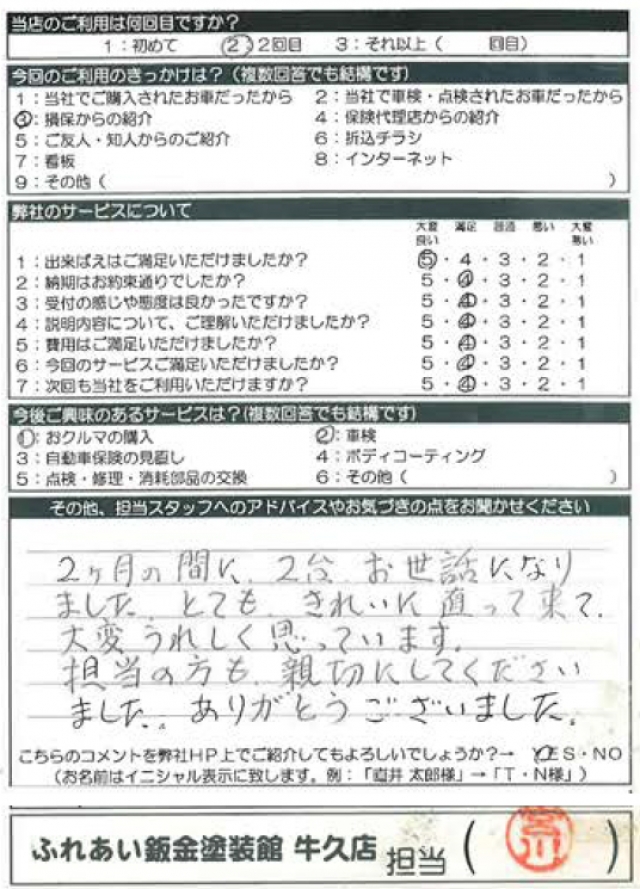 当店のご利用は何回目ですか?
1：初めて 2：2回目 3：それ以上( 回目)
今回のご利用のきっかけは?(複数回答でも結構です)
1：当社でご購入されたお車だったから 2：当社で車検・点検されたお車だったから
3：損保からの紹介 4：保険代理店からの紹介
5：ご友人・知人からのご紹介 6：折込チラシ
7：看板 8：インターネット
9：その他( )
弊社のサービスについて
大変良い 満足 普通 悪い 大変悪い
1：出来ばえはご満足いただけましたか? 5・4・3・2・1
2：納期はお約束通りでしたか? 5・4・3・2・1
3：受付の感じや態度は良かったですか? 5・4・3・2・1
4：説明内容について、ご理解いただけましたか? 5・4・3・2・1
5：費用はご満足いただけましたか? 5・4・3・2・1
6：今回のサービスご満足いただけましたか? 5・4・3・2・1
7：次回も当社をご利用いただけますか? 5・4・3・2・1
今後ご興味のあるサービスは?(複数回答でも結構です)
1：おクルマの購入 2：車検
3：自動車保険の見直し 4：ボディコーティング
5：点検・修理・消耗部品の交換 6：その他( )
その他、担当スタッフへのアドバイスやお気づきの点をお聞かせください
2ヶ月の間に、2台、お世話になり
ました。とても、きれいに直って来て、
大変うれしく思っています。
担当の方も、親切にしてください
ました。ありがとうございました。
こちらのコメントを弊社HP上でご紹介してもよろしいでしょうか?→ YES・NO
(お名前はイニシャル表示に致します。例：「直井 太郎様」→「T・N様」)
ふれあい鈑金塗装館 牛久店 担当( )